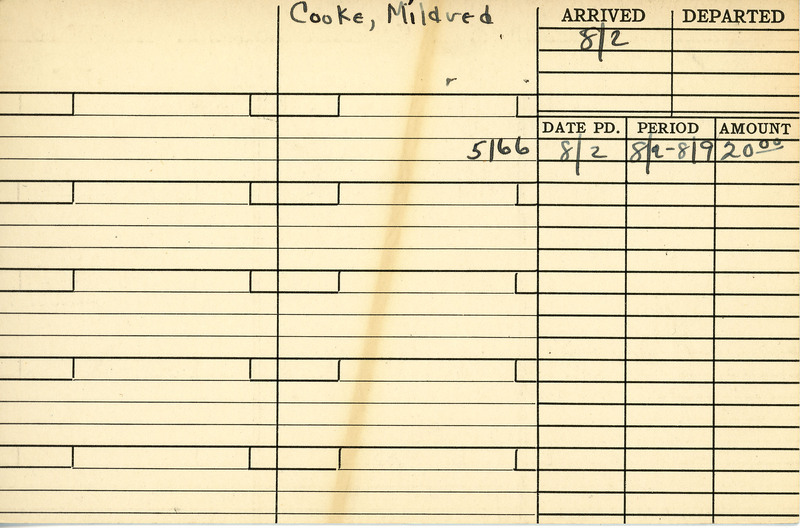 Cooke, Mildred
ARRIVED DEPARTED
8/2
DATE PD. PERIOD AMOUNT
5166 8/2 8/2-8/9 20.00